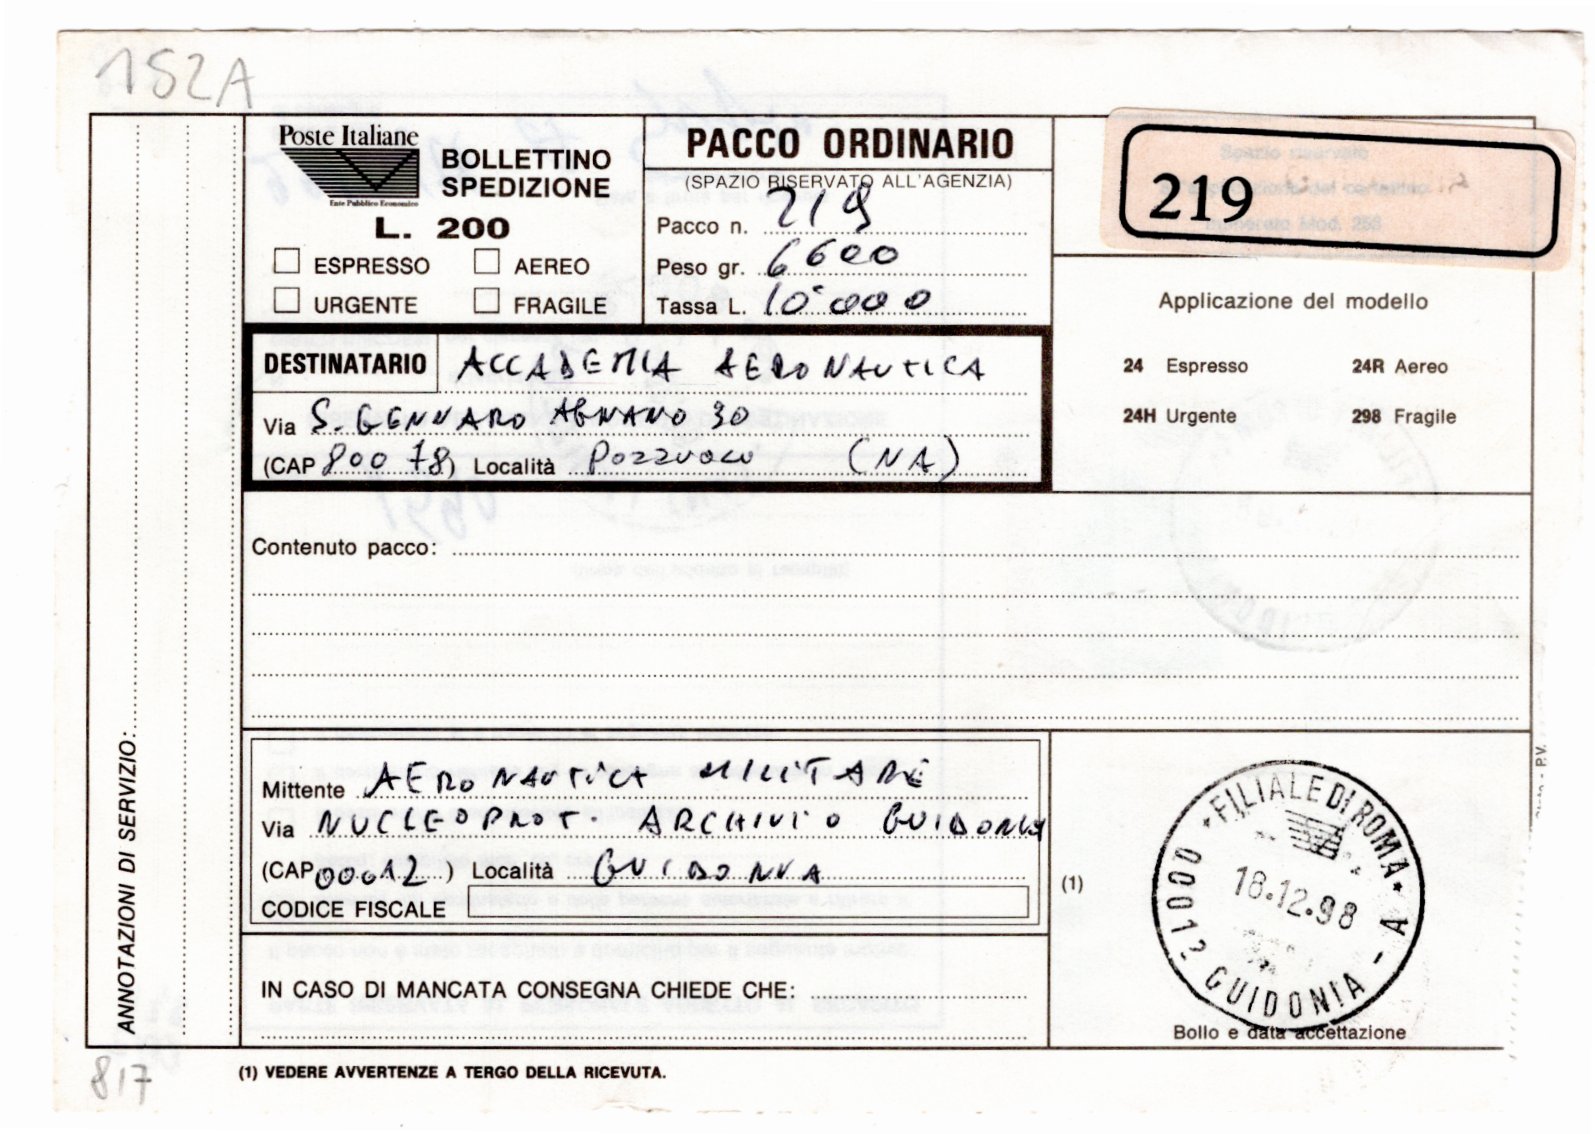 152A
Poste Italiane
Ente Pubblico Economico
BOLLETTINO
SPEDIZIONE
L. 200
ESPRESSO AEREO
URGENTE FRAGILE
PACCO ORDINARIO
(SPAZIO RISERVATO ALL'AGENZIA)
Pacco n. 219
Peso gr. 6600
Tassa L. 10000
219
Applicazione del modello
24 Espresso 24R Aereo
24H Urgente 298 Fragile
DESTINATARIO ACCADEMIA AERONAUTICA
Via S. GENNARO AGNANO 30
(CAP 80078) Località Pozzuoli (NA)
Contenuto pacco:
ANNOTAZIONI DI SERVIZIO:
Mittente AERONAUTICA MILITARE
Via NUCLEO PROT. ARCHIVIO GUIDONIA
(CAP 00012) Località GUIDONIA
CODICE FISCALE
IN CASO DI MANCATA CONSEGNA CHIEDE CHE:
(1)
*FILIALE DI ROMA* A - GUIDONIA 21000
18.12.98
Bollo e data accettazione
817
(1) VEDERE AVVERTENZE A TERGO DELLA RICEVUTA.